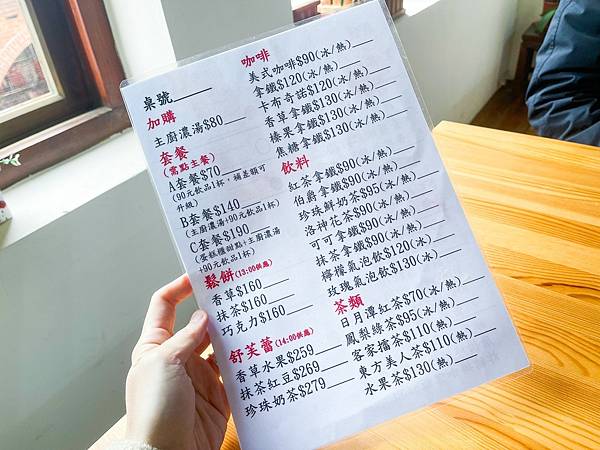 桌號
加購
主廚濃湯$80
套餐
(需點主餐)
A套餐$70
(90元飲品1杯，補差額可
升級)
B套餐$140
(主廚濃湯+90元飲品1杯)
C套餐$190
(蛋糕櫃甜點+主廚濃湯
+90元飲品1杯)
鬆餅(13:00供應)
香草$160
抹茶$160
巧克力$160
舒芙蕾(14:00供應)
香草水果$259
抹茶紅豆$269
珍珠奶茶$279
咖啡
美式咖啡$90(冰/熱)
拿鐵$120(冰/熱)
卡布奇諾$120(冰/熱)
香草拿鐵$130(冰/熱)
榛果拿鐵$130(冰/熱)
焦糖拿鐵$130(冰/熱)
飲料
紅茶拿鐵$90(冰/熱)
伯爵拿鐵$90(冰/熱)
珍珠鮮奶茶$95(冰/熱)
洛神花茶$90(冰/熱)
可可拿鐵$90(冰/熱)
抹茶拿鐵$90(冰/熱)
檸檬氣泡飲$120(冰)
玫瑰氣泡飲$130(冰)
茶類
日月潭紅茶$70(冰/熱)
鳳梨綠茶$95(冰/熱)
客家擂茶$110(熱)
東方美人茶$110(熱)
水果茶$130(熱)